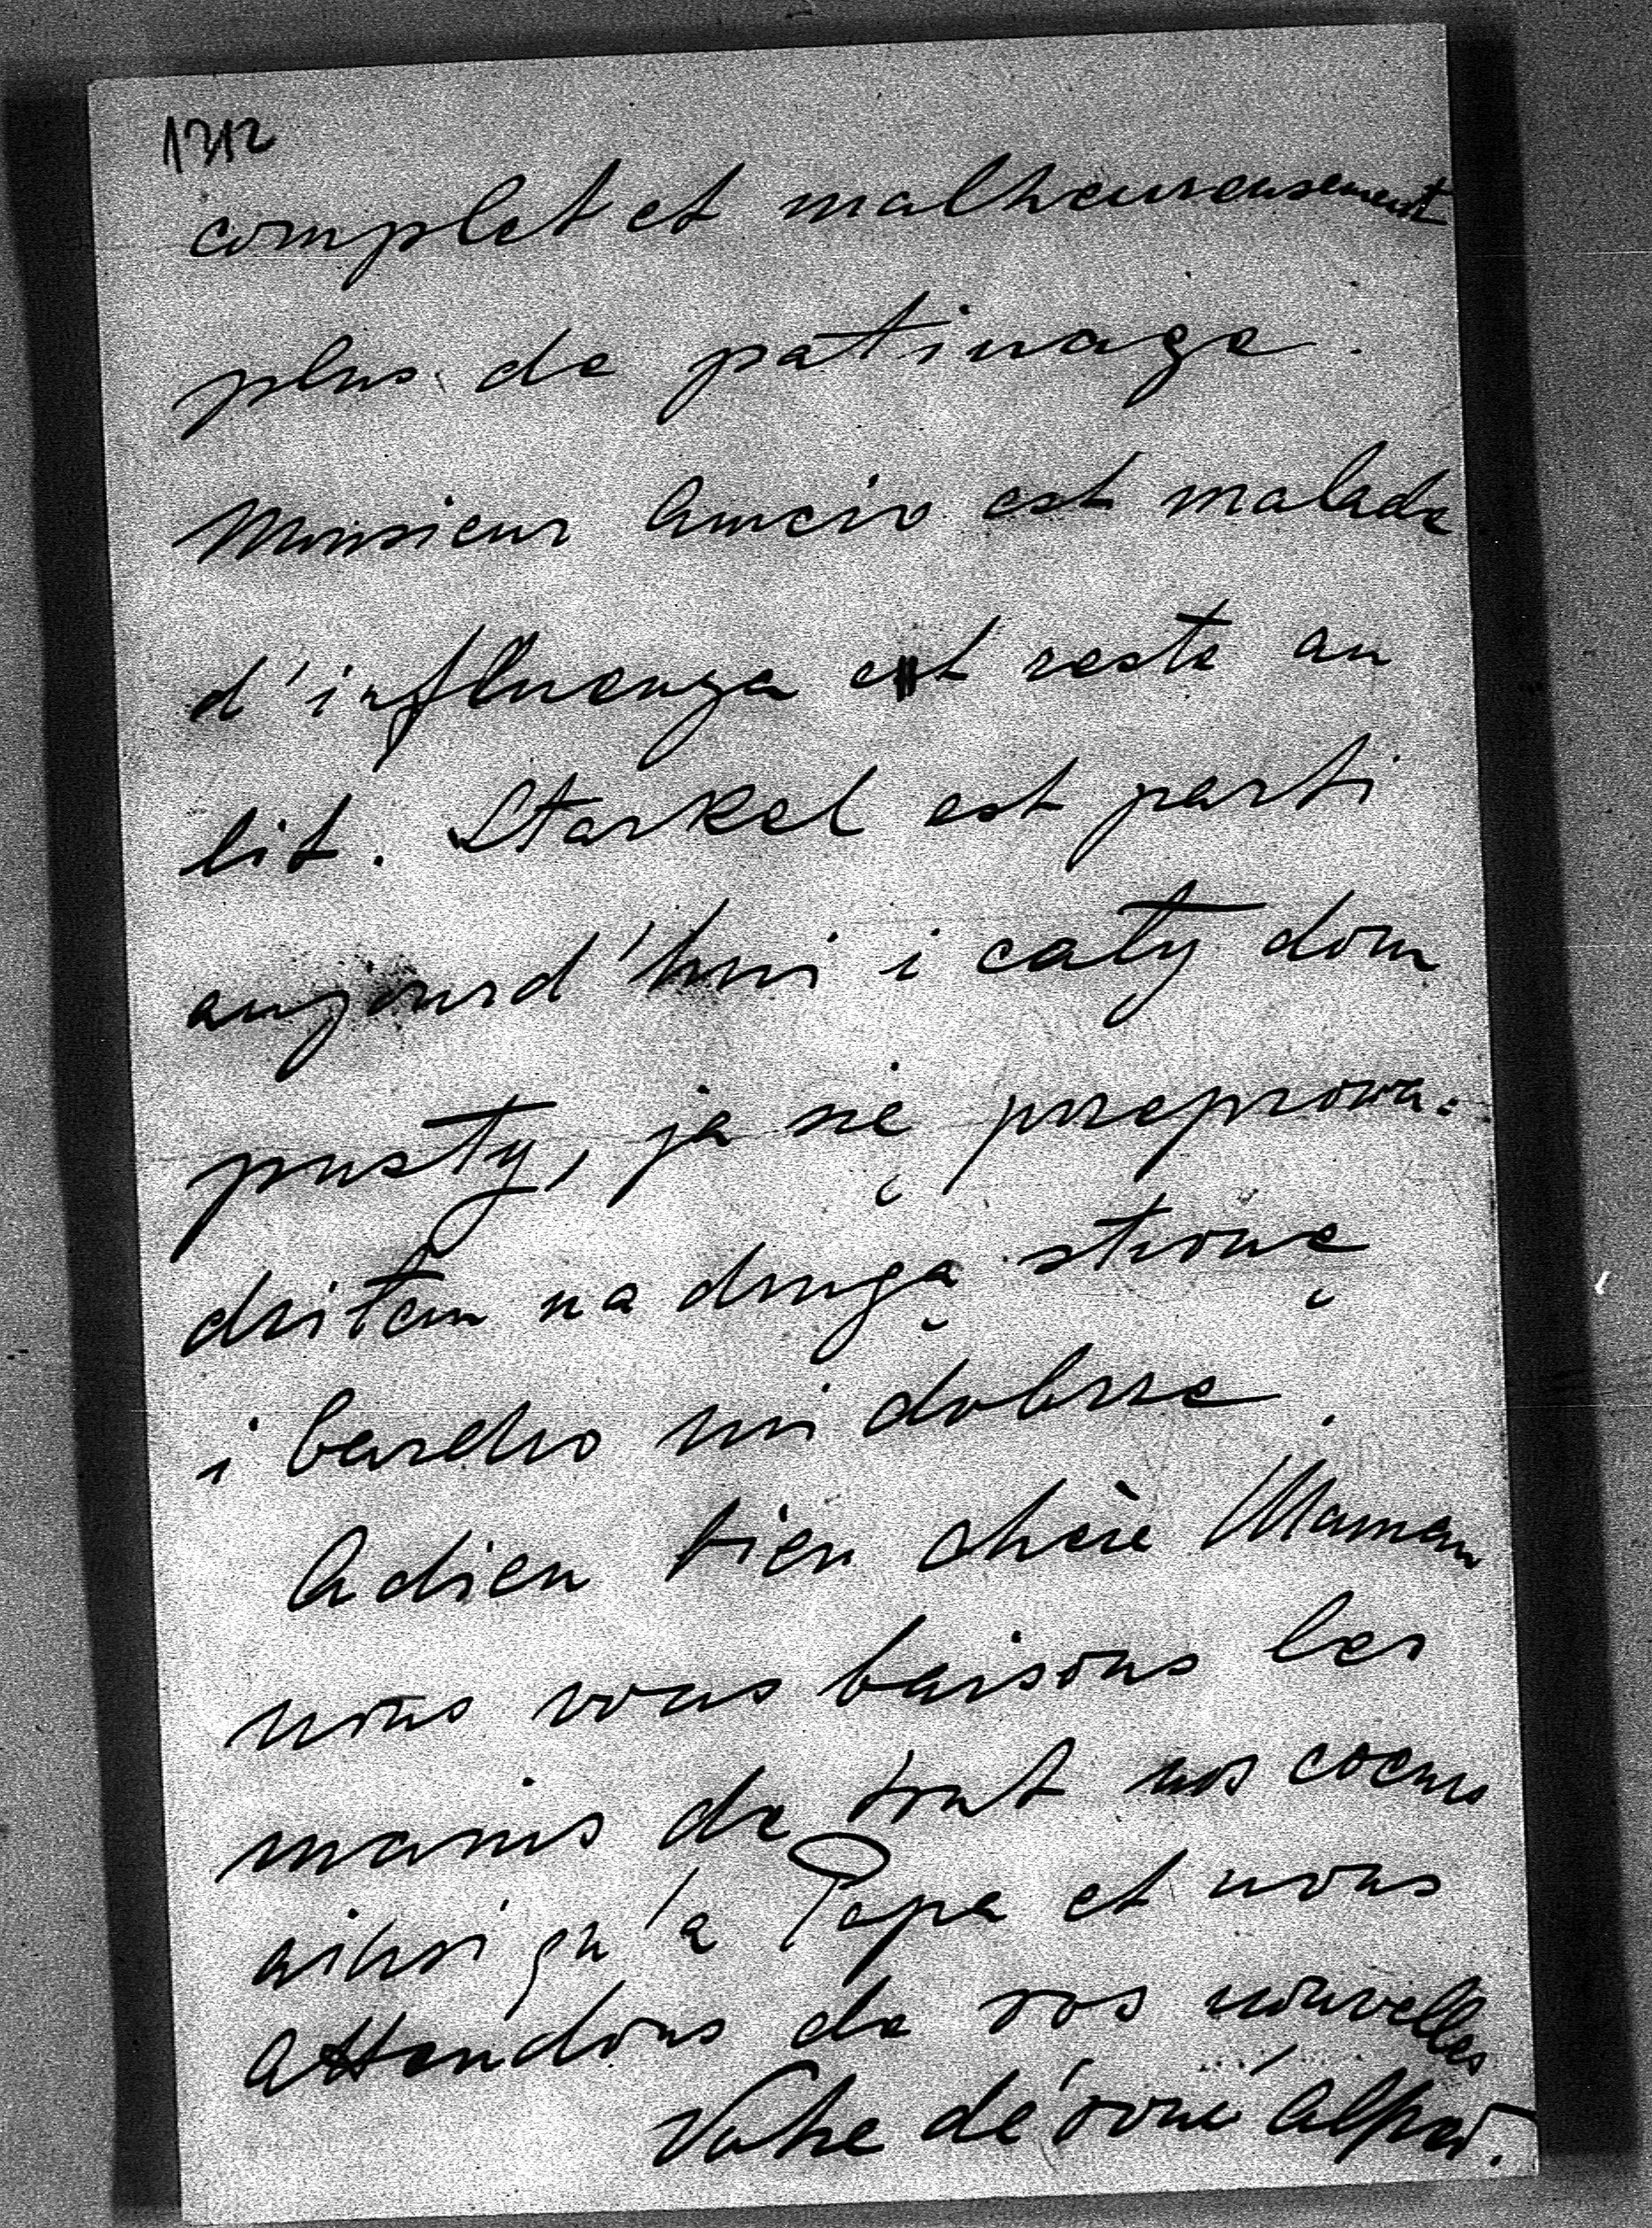 1312
complet et malheureusement
plus de patinage.
Monsieur est malade
d'influenza et reste au
lit. Starkel est parti
aujourd'hui i cały dom
pusty, ja się przeprowa-
dziłem na drugą stronę
i bardzo mi dobrze.
Adieu bien chère Maman
nous vous baisons les
mains de tout nos coeurs
ainsi qu'a Papa et nous
attendons de vos nouvelles
Votre dévoué Alfred.